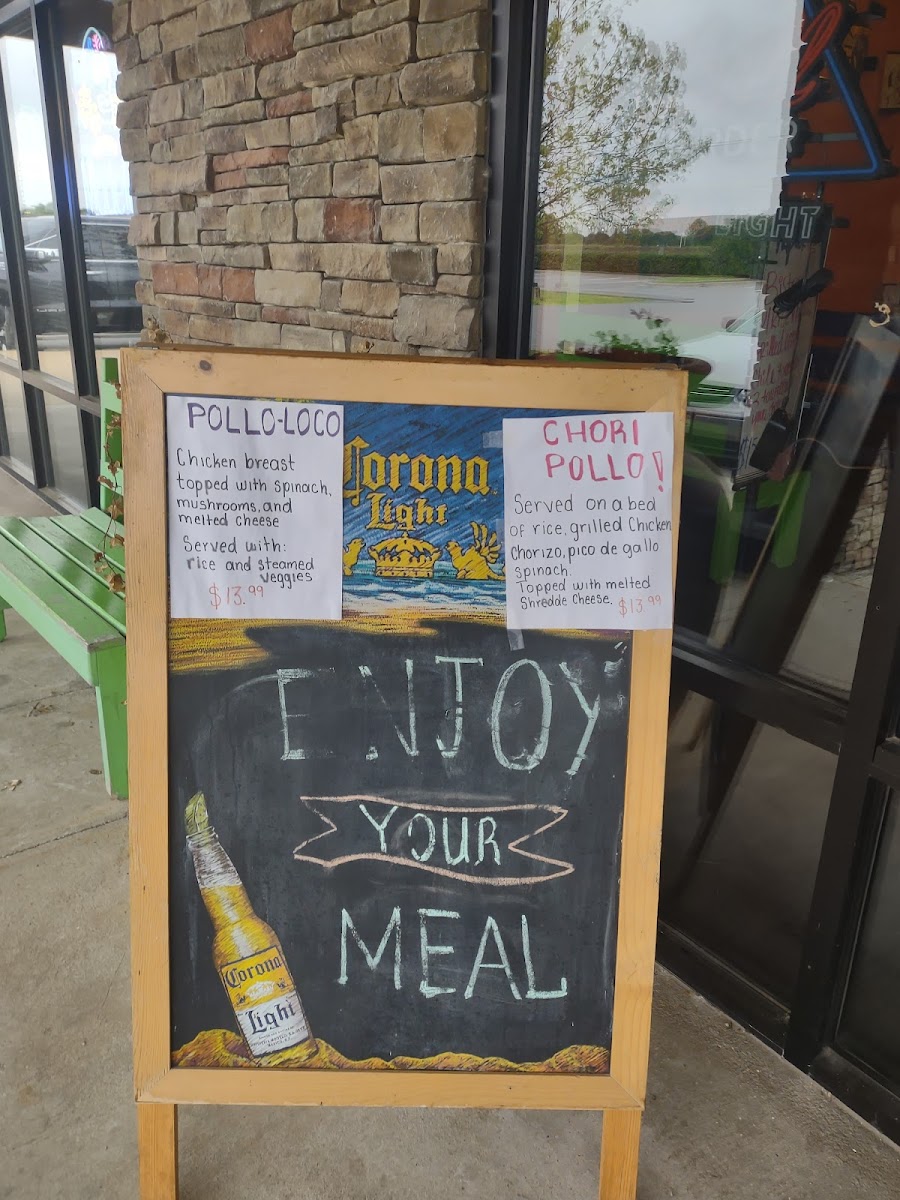 POLLO-LOCO
Chicken breast
topped with spinach,
mushrooms, and
melted cheese
Served with:
rice and steamed
veggies
$13.99
Corona
Light
CHORI
POLLO!
Served on a bed
of rice, grilled Chicken
Chorizo, pico de gallo
spinach.
Topped with melted
Shredde Cheese. $13.99
ENJOY
YOUR
MEAL
Corona
Light
LIGHT